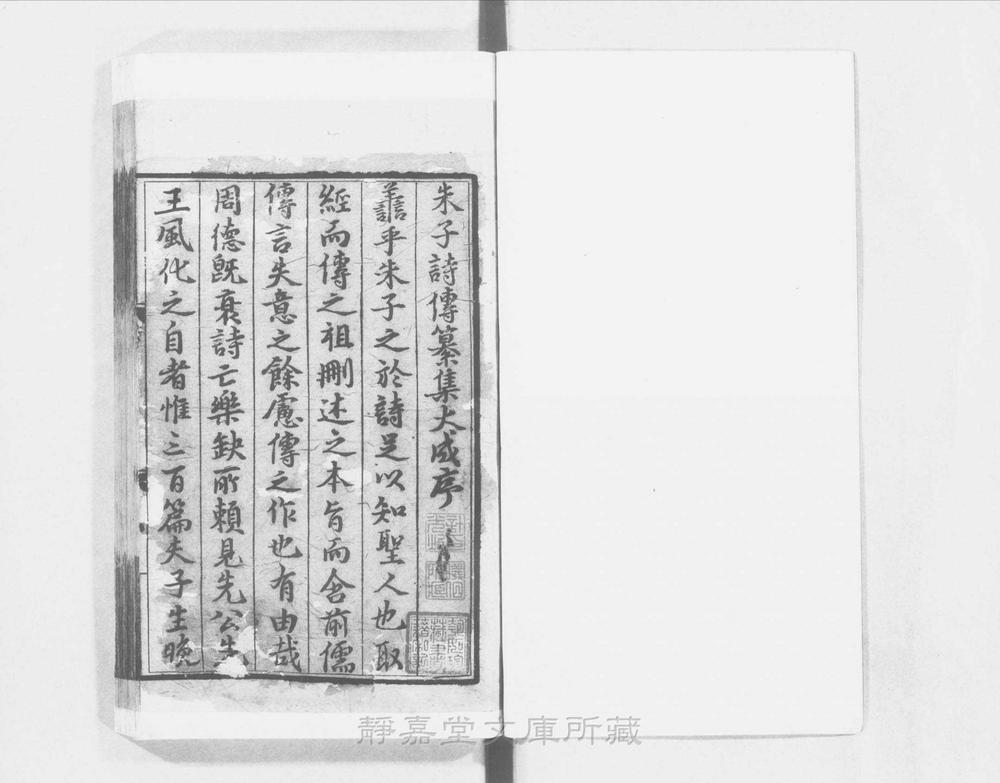 朱子詩傳纂集大成序
譱乎朱子之於詩足以知聖人也取
經而傳之祖刪述之本旨而舍前儒
傳言失意之餘慮傳之作也有由哉
周德旣衰詩亡樂缺所賴見先公先
王風化之自者惟三百篇夫子生晚
靜嘉堂文庫所藏